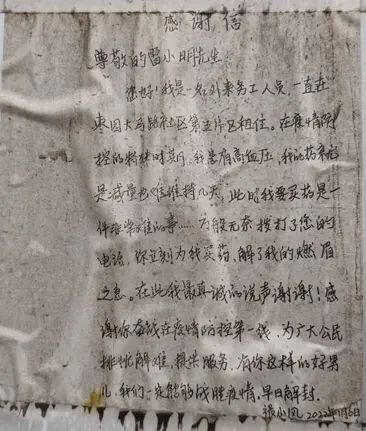 感谢信
尊敬的雷小明先生
您好！我是一名外来务工人员，一直在
枣园大马路社区第五片区租住。在疫情防
控的特殊时期，我患有高血压，我的药来
是减量也难维持几天，此时我要买药是一
件非常难的事……万般无奈拨打了您的
电话，你立刻为我买药，解了我的燃眉
之急。在此我最真诚的说声谢谢！感
谢你奋战在疫情防控第一线，为广大公民
排忧解难，提供服务，有你这样的好男
儿，我们一定能够战胜疫情。早日解封.
张小凤 2022年11月6日